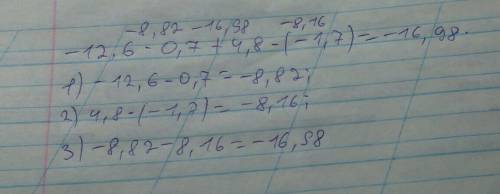 -8,82 -16,98 -8,16
-12,6 - 0,7 + 4,8 - (-1,7) = -16,98.
1) -12,6 - 0,7 = -8,82;
2) 4,8 - (-1,7) = -8,16;
3) -8,82 - 8,16 = -16,98